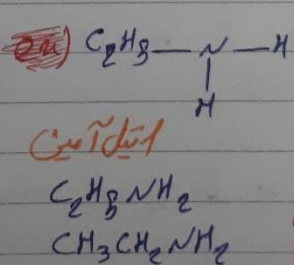 C₂H₅—N—H
H
اتیل آمین
C₂H₅NH₂
CH₃CH₂NH₂